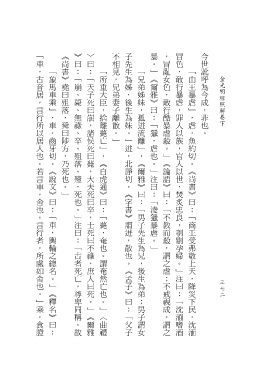 金光明經照解卷下
三七二
今世訛呼為今成，非也。
「由王暴虐」，虐，魚約切。《尚書》曰：「商王受弗敬上天，降災下民，沈湎
冒色，敢行暴虐，罪人以族，官人以世，焚炙忠良，刳剔孕婦。」注曰：「沈湎嗜酒
，冒亂女色，敢行酷暴虐殺。」《論語》曰：「不教而殺，謂之虐；不戒視成，謂之
暴。」《爾雅》曰：「獵，虐也。」注曰：「淩獵暴虐。」
「兄弟姊妹，孤迸流離」，《爾雅》曰：「男子先生為兄，後生為弟；男子謂女
子先生為姊，後生為妹。」迸，北諍切，《字書》謂迸，散也。《孟子》曰：「父子
不相見，兄弟妻子離散。」
「所重大臣，捨離薨亡」，《白虎通》曰：「薨，奄也，謂奄然亡也。」《曲禮
》曰：「天子死曰崩，諸侯死曰薨，大夫死曰卒，士死曰不祿，庶人曰死。」《爾雅
》曰：「崩、薨、無祿、卒、殂落、殪，死也。」注曰：「古者死亡，尊卑同稱，故
《尚書》堯曰殂落，舜曰陟方，乃死也。」
「象馬車乘」，車，齒牙切。《說文》曰：「車，輿輪之總名。」《釋名》曰：
「車，古音居，言行所以居人也。若言車，舍也，言行者，所處如舍也。」乘，食證